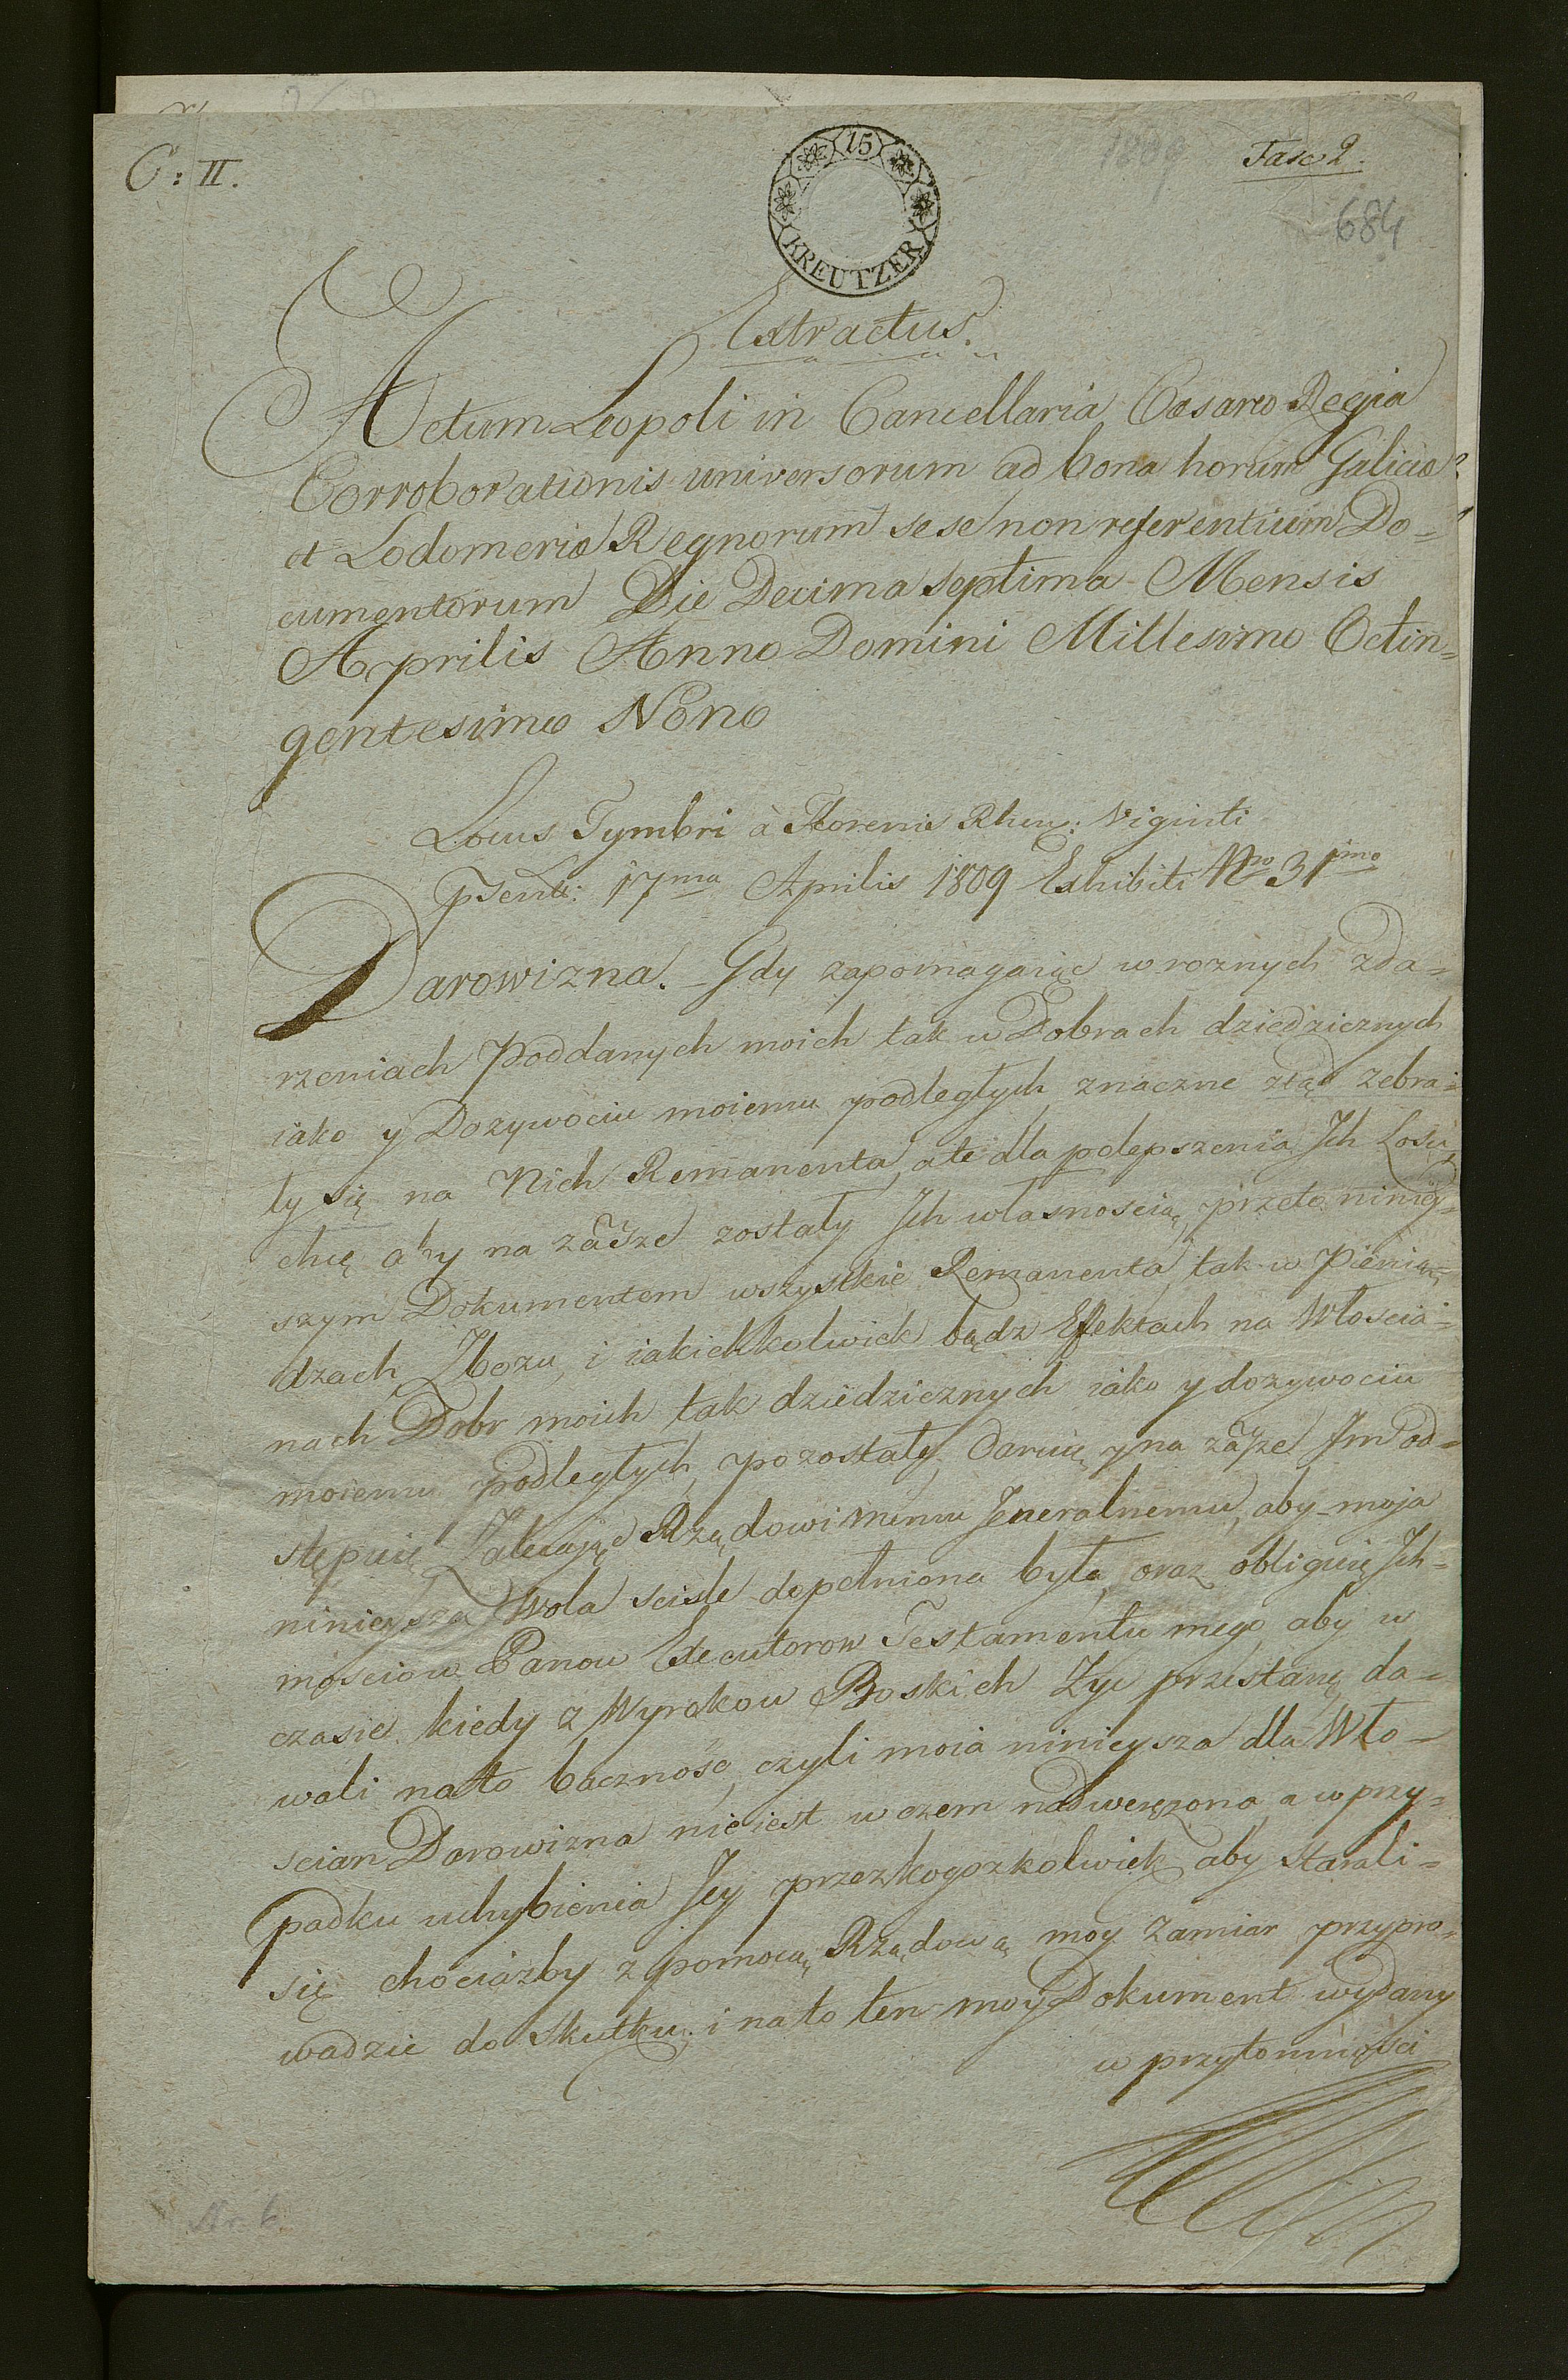 C: II.
15
KREUTZER
1809
Fasc 2.
684
Extractus.
Actum Leopoli in Cancellaria Cæsareo Regia
Corroborationis universorum ad bona horum Galiciæ
et Lodomeriæ Regnorum sese non referentium Do=
cumentorum Die Decima septima Mensis
Aprilis Anno Domini Millesimo Octin=
gentesimo Nono
Locus Tymbri à Florenis Rhen: Viginti
psent: 17ma Aprilis 1809 Exhibiti Nro 31mo
Darowizna. Gdy zapomagaiąc w roznych zda=
rzeniach Poddanych moich tak w Dobrach dziedzicznych
iako y Dozywociu moiemu podległych znaczne ztąd zebra=
ły się na Nich Remanenta, ale dla polepszenia Ich Losu,
chcę aby na zawsze zostały Ich własnoscią, przeto niniey=
szym Dokumentem wszystkie Remanenta tak w Pienią=
dzach Zbozu, i iakichkolwiek bądz Effektach na Włoscia=
nach Dobr moich tak dziedzicznych iako y dozywociu
moiemu podległych, pozostałe, daruię y na zawsze Im od=
stępuię. Zalecając Rządowi memu Jeneralnemu, aby moja
ninieysza Wola scisle dopełniona była, oraz obliguię Ich=
mosciow Panow Executorow Testamentu mego, aby w
czasie kiedy z Wyrokow Boskich Zyc przestanę, da=
wali na to baczność, czyli moia ninieysza dla Wło=
scian Darowizna nie iest w czem nadweręzona, a w przy=
padku uchybienia Jey przez kogozkolwiek, aby starali=
się chociażby z pomocą Rządową moy zamiar przypro=
wadzic do skutku; i na to ten moy Dokument wydany
w przytomności
Nr. 6.